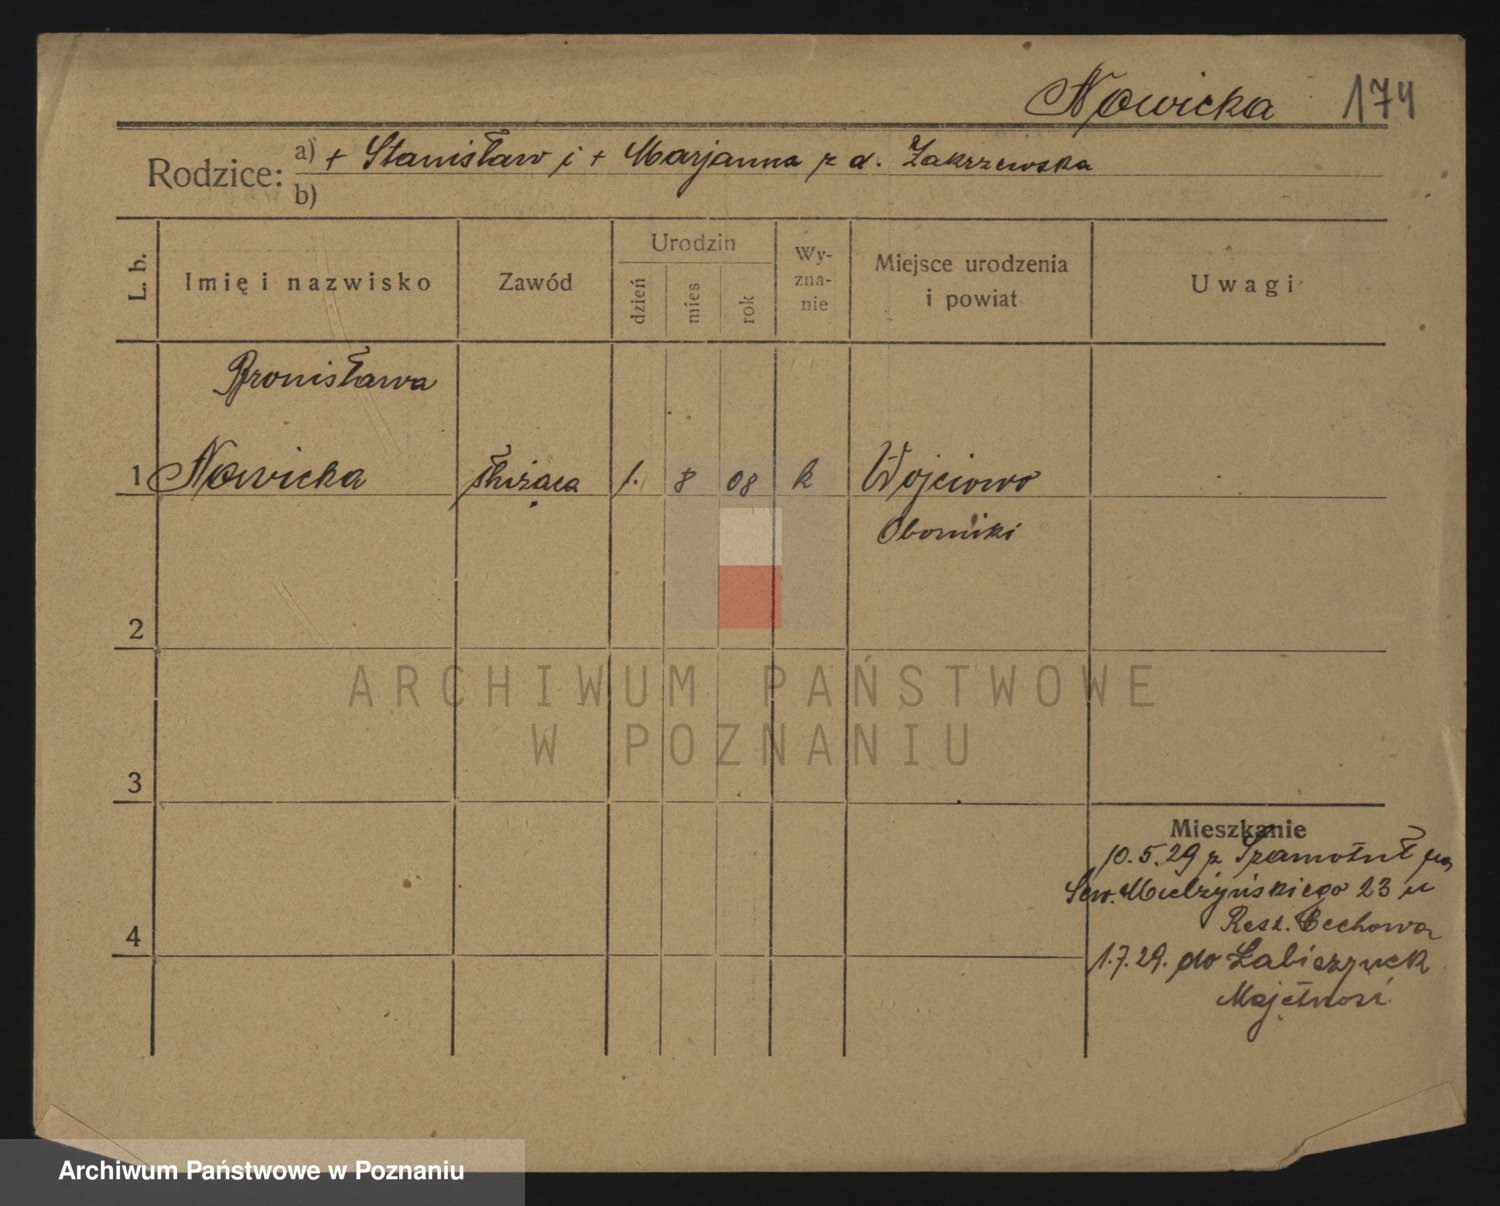 Nowicka 174
Rodzice: a) + Stanisław i + Marjanna z d. Zakrzewska
b)
L. b. Imię i nazwisko Zawód Urodzin dzień mies rok Wyznanie Miejsce urodzenia i powiat Uwagi
Bronisława
1 Nowicka służąca 1. 8 08 k Wojciowo
Oborniki
2
3
4
Mieszkanie
10.5.29 z Szamotuł
Sew. Mielżyńskiego 23 u
Rest. Cechowa
1.7.29. do Łabiszynek
Majętność
ARCHIWUM PAŃSTWOWE
W POZNANIU
Archiwum Państwowe w Poznaniu